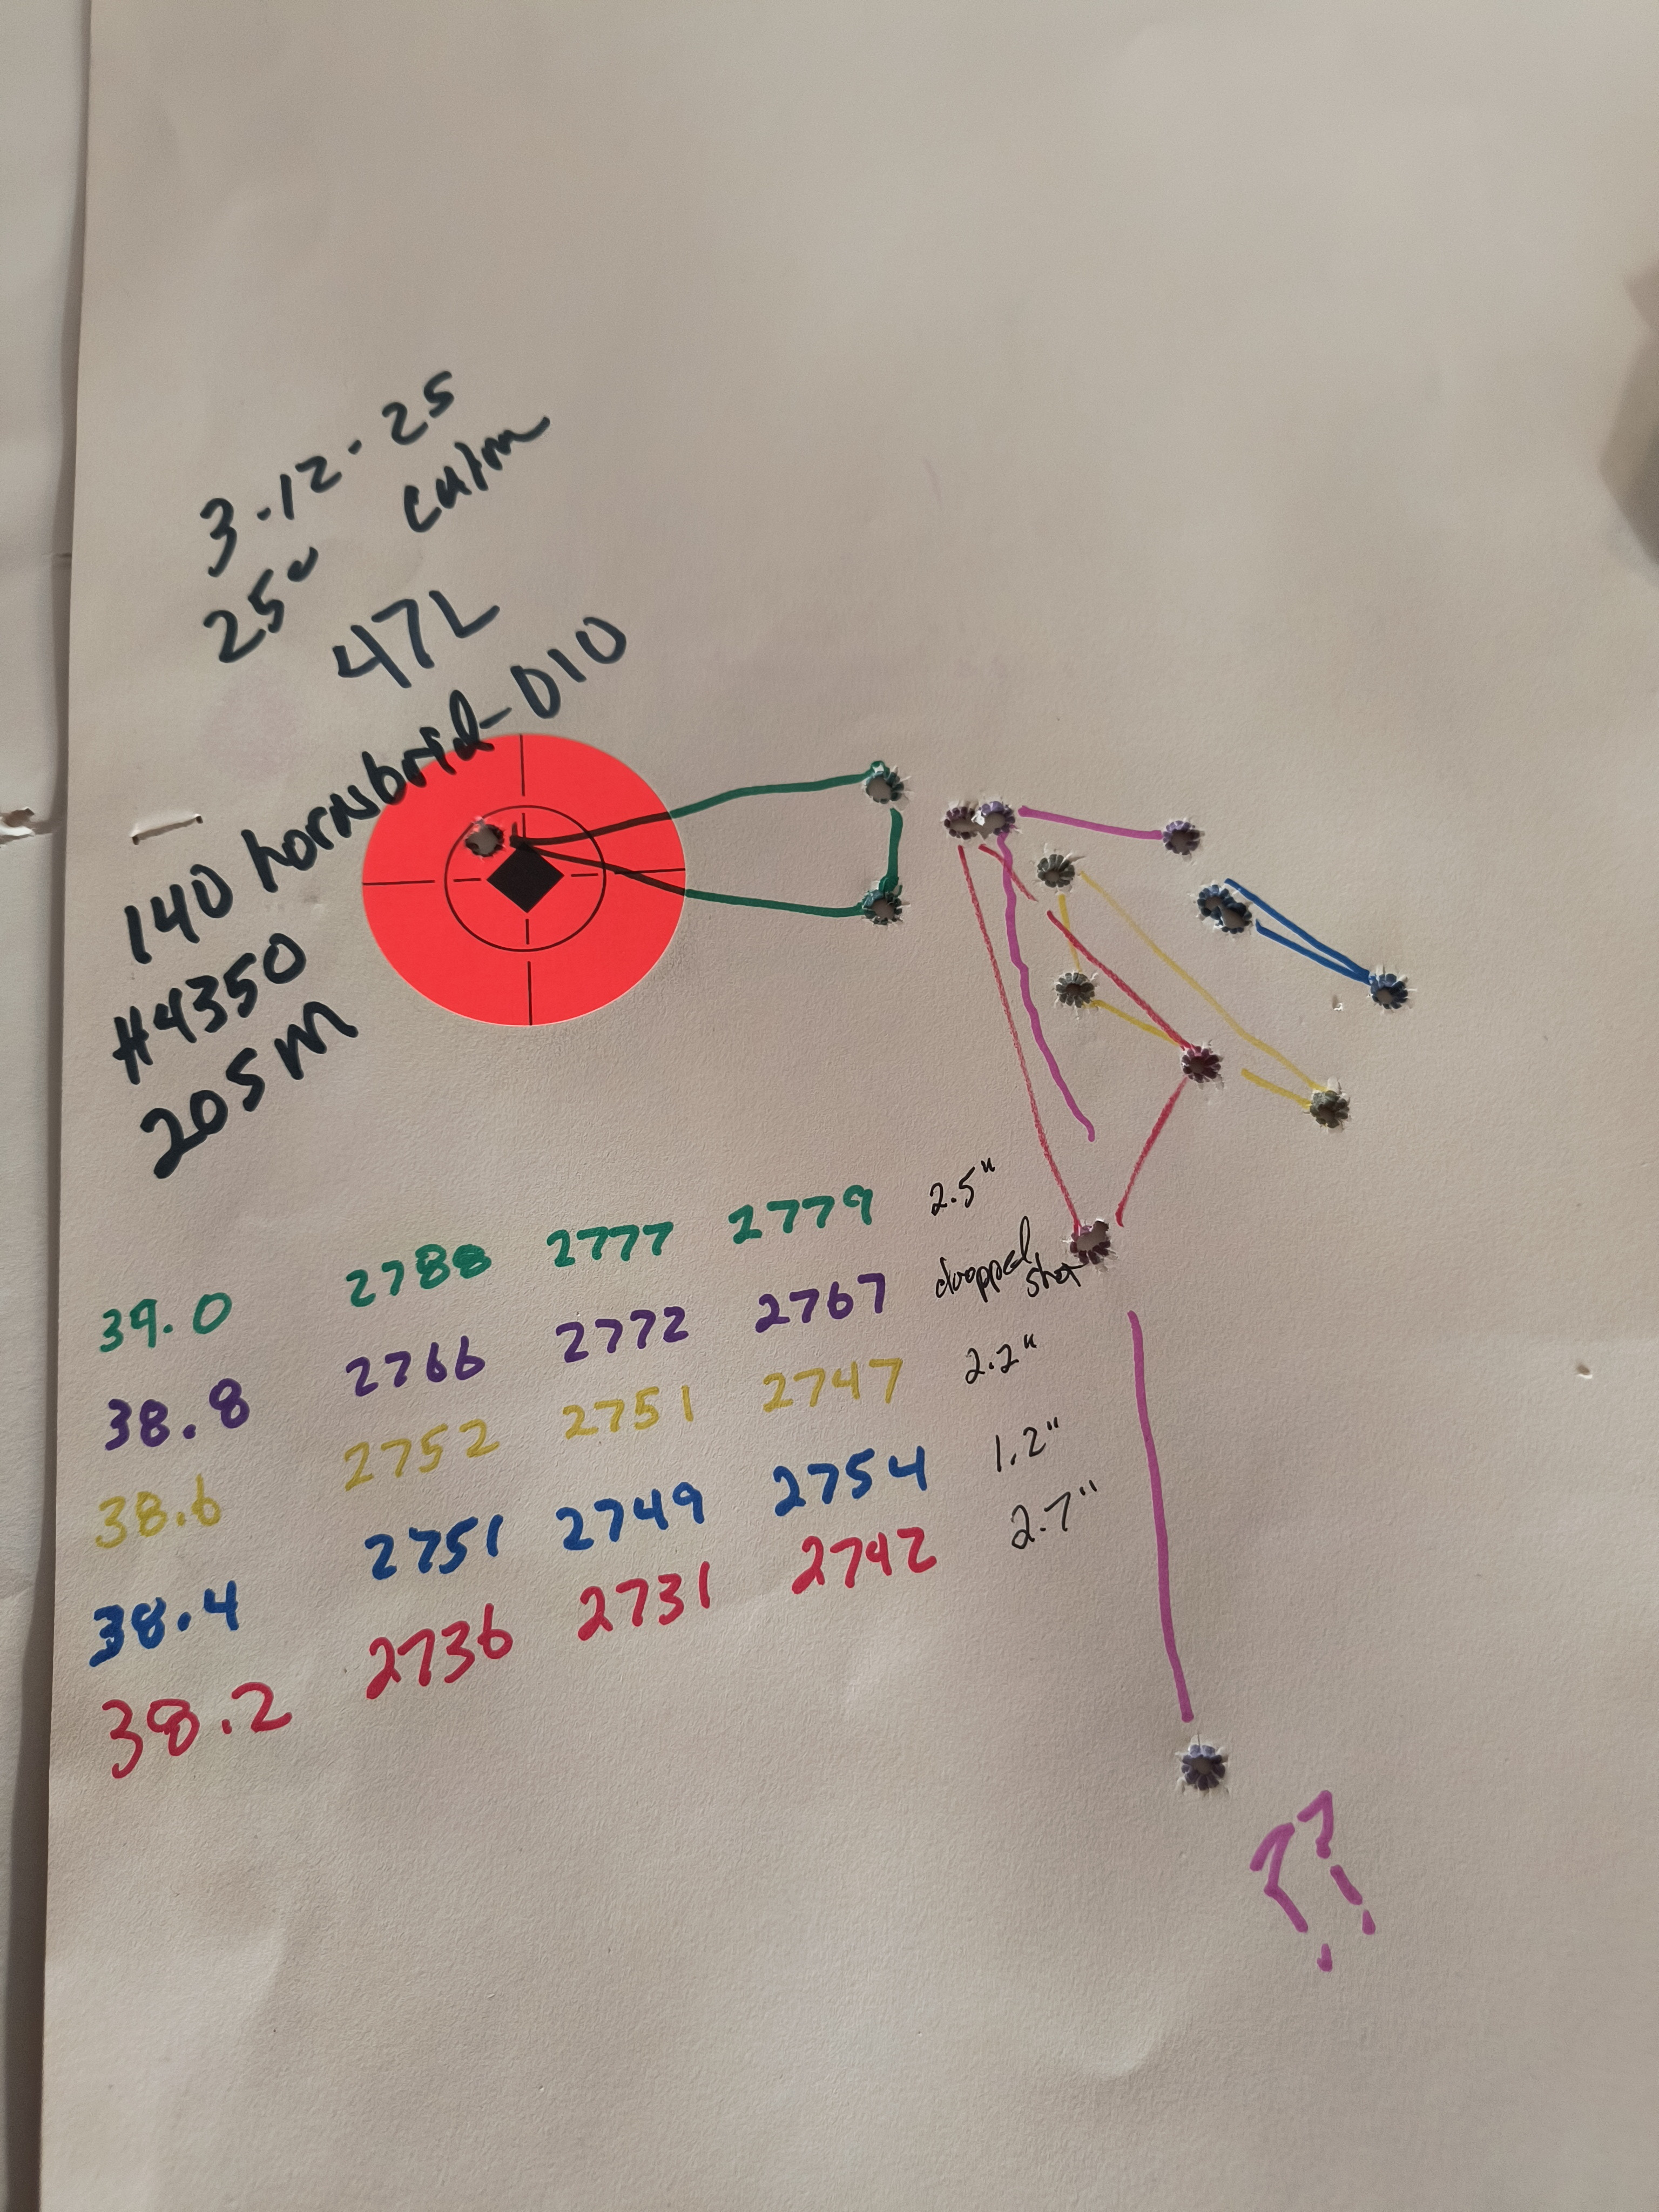 3.12.25
25° calm
47L
140 hornsbrid-010
H4350
205m
39.0 2788 2777 2779 2.5"
38.8 2766 2772 2767 dropped shot
38.6 2752 2751 2747 2.2"
38.4 2751 2749 2754 1.2"
38.2 2736 2731 2742 2.7"
??